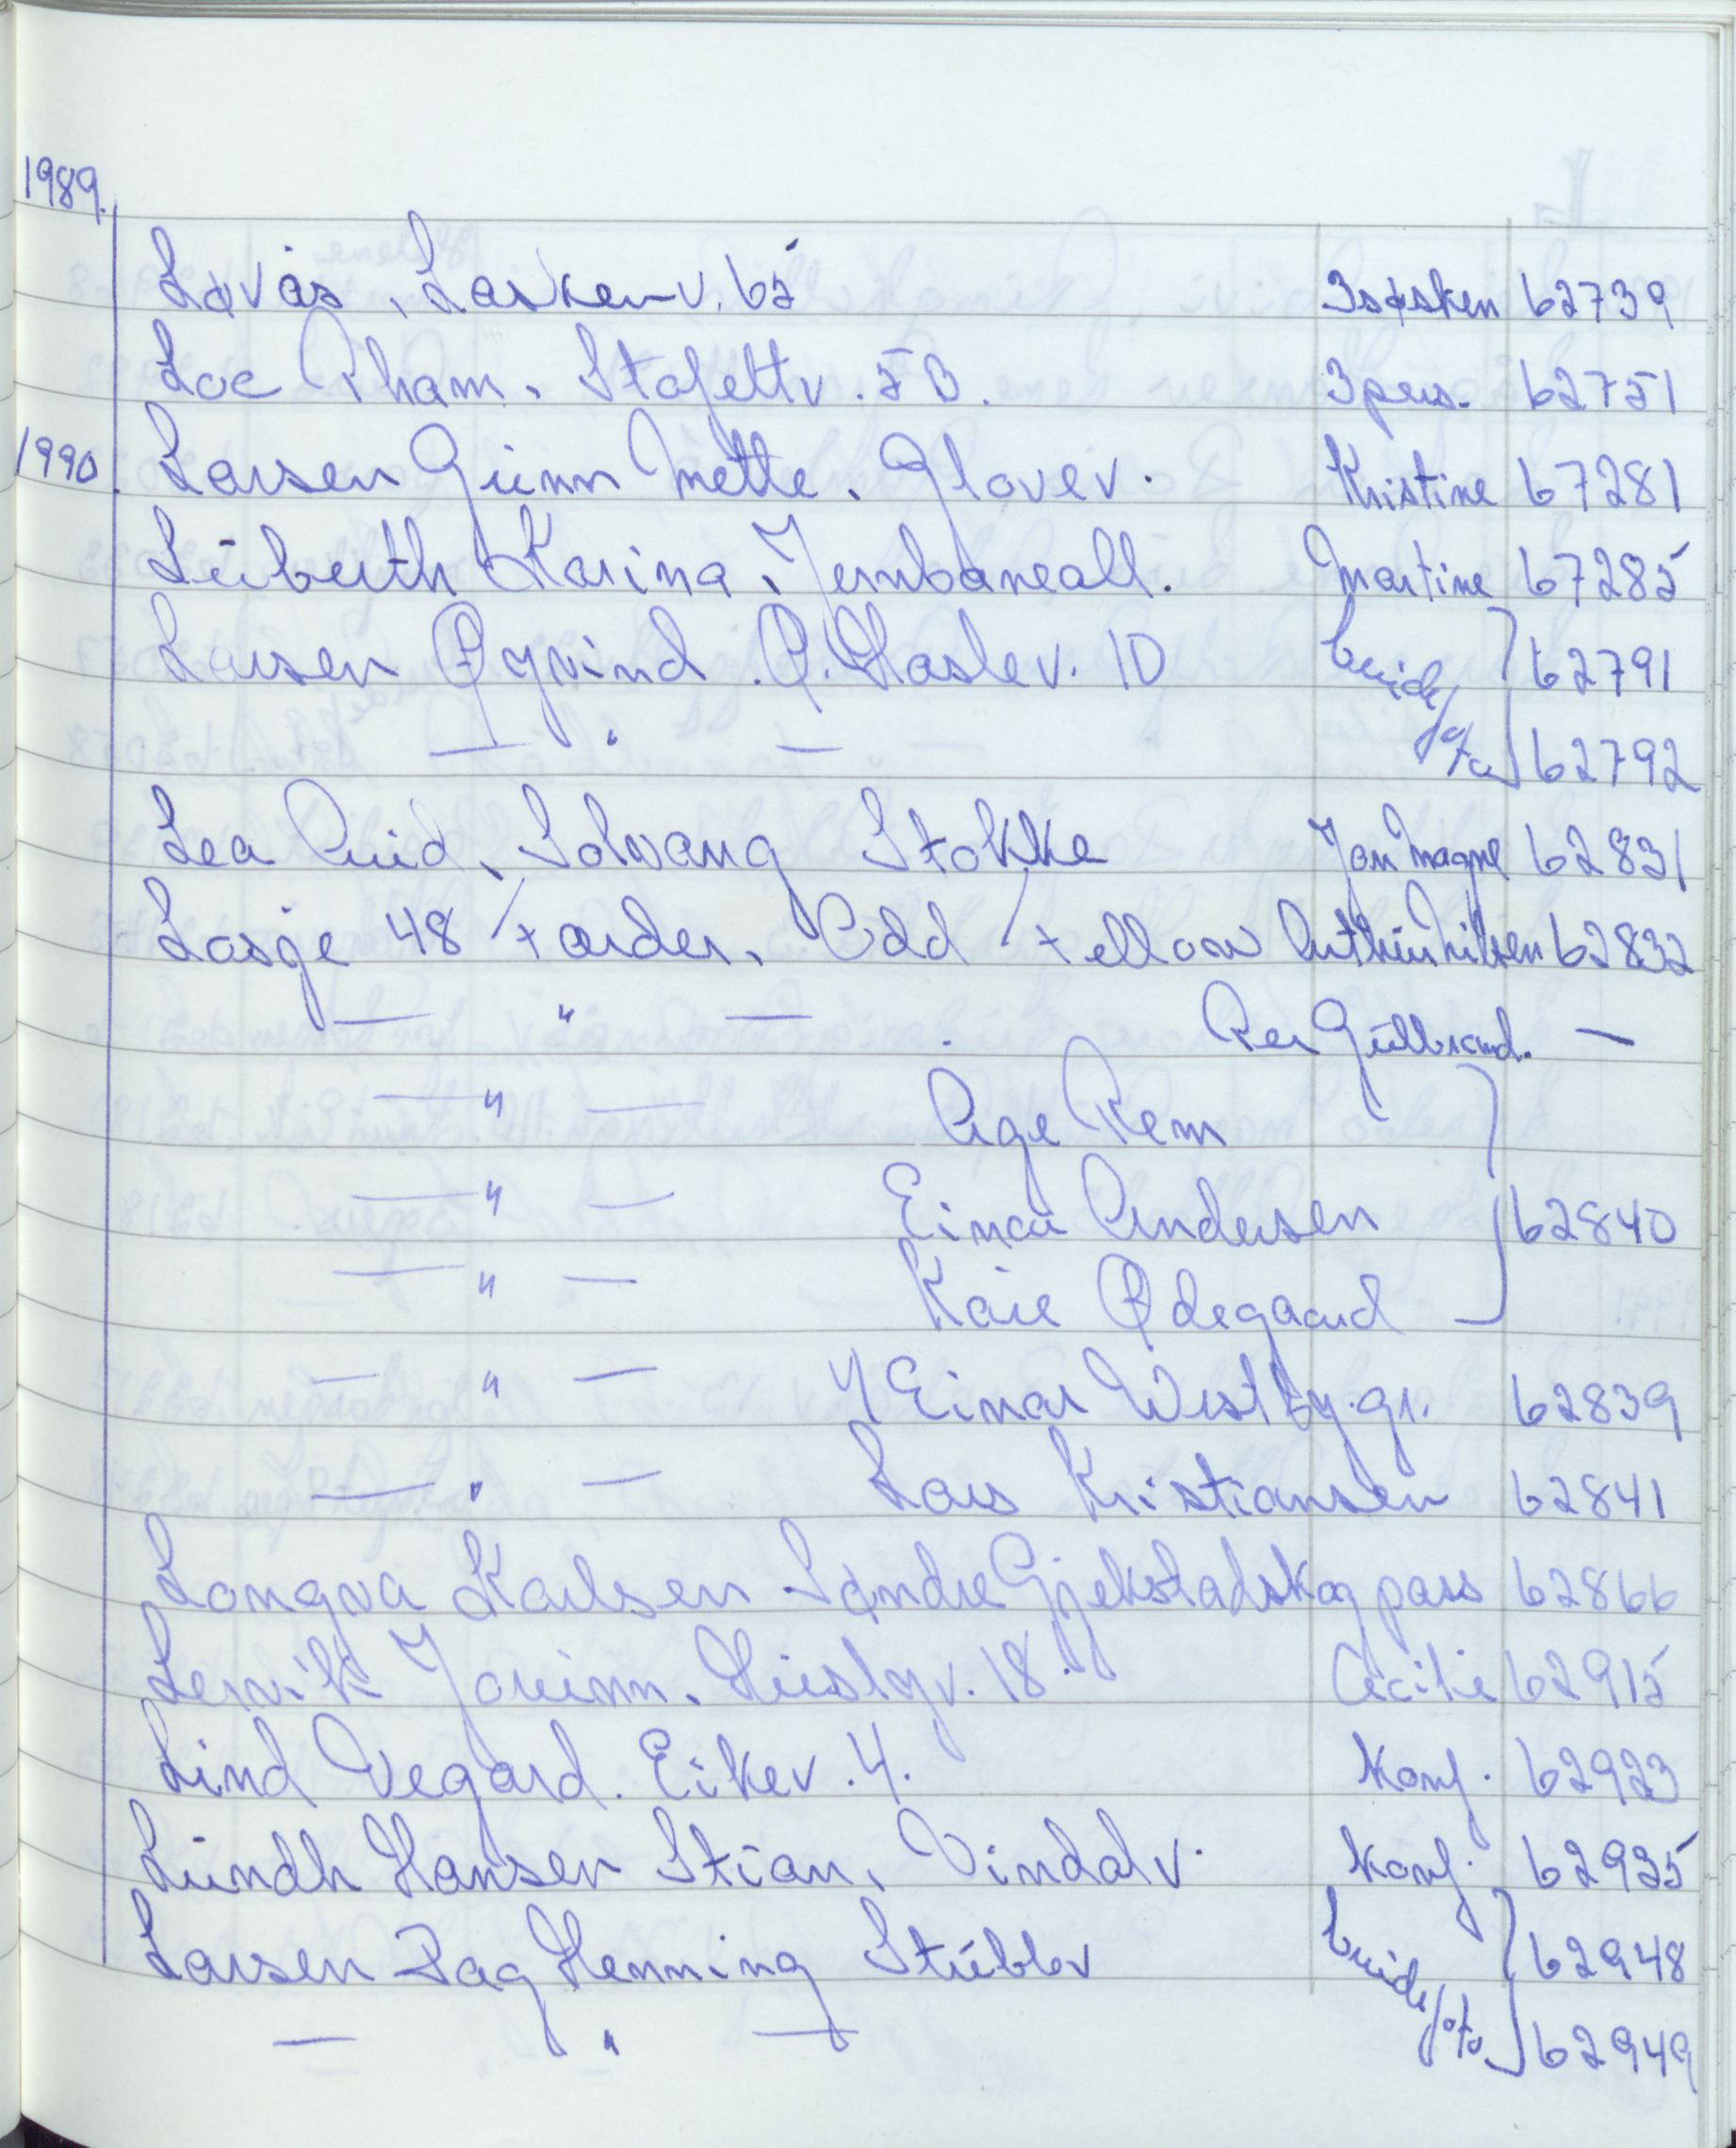 1989.
Løvås, Laskenv. 65 3 søsken 62739
Loc Pham. Stafettv. 5B. 3 pers. 62751
1990 Larsen Gunn Mette. Glover. Kristine 67281
Lüberth Karina, Jernbaneall. Martine 67285
Larsen Øyvind. Ø. Haslev. 10 brude/foto 62791
— " — 62792
Lea Auid. Solvang Stokke Jan Magne 62831
Losje 48 Færder. Odd Fellow Arthur Nilsen 62832
— " — Per Gulbrand. —
— " — Åge Rem
— " — Einar Andersen 62840
— " — Kåre Ødegaard
— " — 4 Einar Westby.gr. 62839
— " — Lars Kristiansen 62841
Longva Karlsen Søndre Gjekstadskog pass 62866
Lervik Jorunn. Husbyv. 18. Cecilie 62915
Lind Vegard. Eikev. 4. Konf. 62923
Lundh Hansen Stian, Vindalv. Konf. 62925
Larsen Dag Henning Stubbv brude/foto 62948
— " — 62949